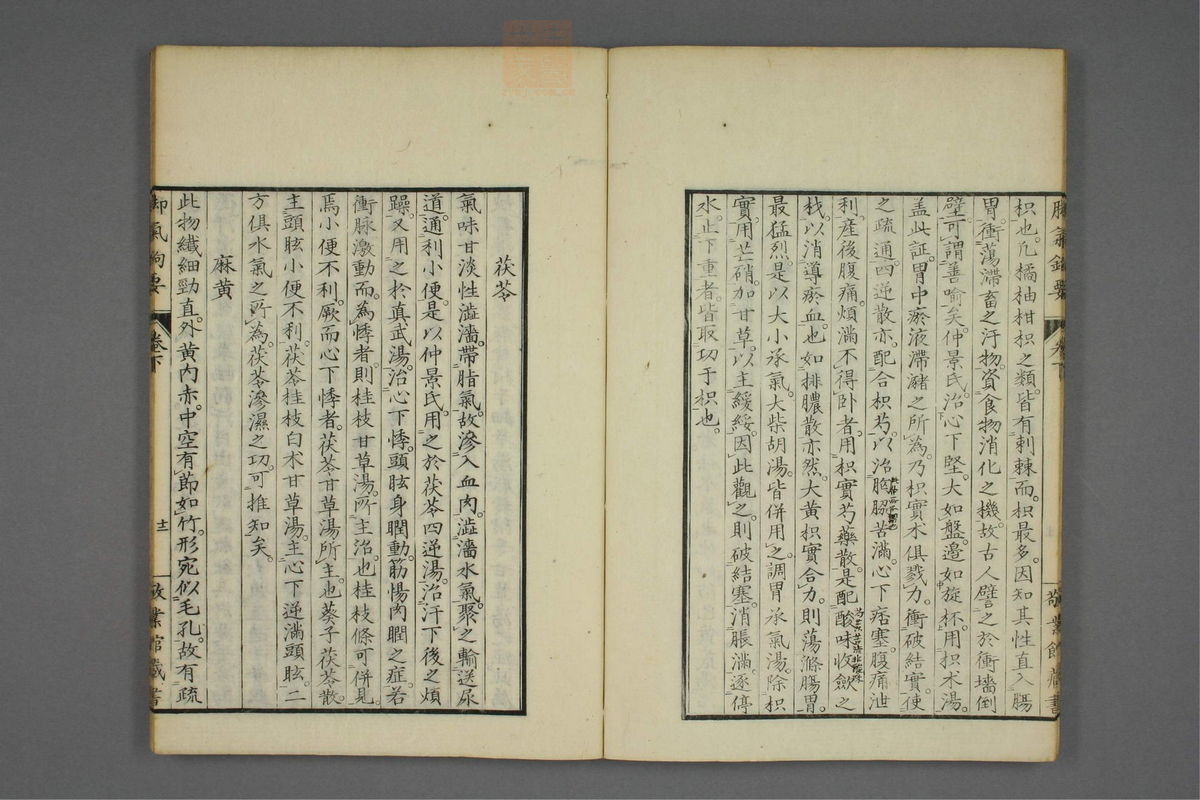 枳也。凡橘柚柑枳之類。皆有刺棘而。枳最多。因知其性直入腸
胃。衝蕩滯畜之汙物。資食物消化之機。故古人譬之於衝墻倒
壁。可謂善喻矣。仲景氏。治心下堅。大如盤。邊如旋杯。用枳朮湯。
盖此証。胃中瘀液滯瀦之所為。乃枳實朮俱戮力。衝破結實。使
之疏通。四逆散亦。配合枳芍。以治胸脇苦滿。心下痞塞。腹痛泄
利。產後腹痛。煩滿不得臥者。用枳實芍藥散。是配酸味收斂之
芍。以消導瘀血也。如排膿散亦然。大黃枳實合力。則蕩滌腸胃。
最猛烈。是以大小承氣。大柴胡湯。皆併用之。調胃承氣湯。除枳
實。用芒硝。加甘草。以主緩緩。因此觀之。則破結塞。消脹滿。逐停
水。止下重者。皆取功于枳也。
卷下
敬業館藏書
茯苓
氣味甘淡性澁濇。帶脂氣。故滲入血肉。澁濇水氣。聚之輸送尿
道。通利小便。是以仲景氏。用之於茯苓四逆湯。治汗下後之煩
躁。又用之於真武湯。治心下悸。頭眩身瞤動。筋惕肉瞤之症。若
衝脉激動而。為悸者。則桂枝甘草湯。所主治也桂枝條可併見。
焉小便不利。厥而心下悸者。茯苓甘草湯所主也葵子茯苓散。
主頭眩小便不利。茯苓桂枝白朮甘草湯。主心下逆滿頭眩。二
方俱水氣之所為。茯苓滲濕之功。可推知矣。
麻黃
此物纖細勁直。外黃內赤。中空有節如竹。形宛似毛孔。故有疏
卷下
十二
敬業館藏書